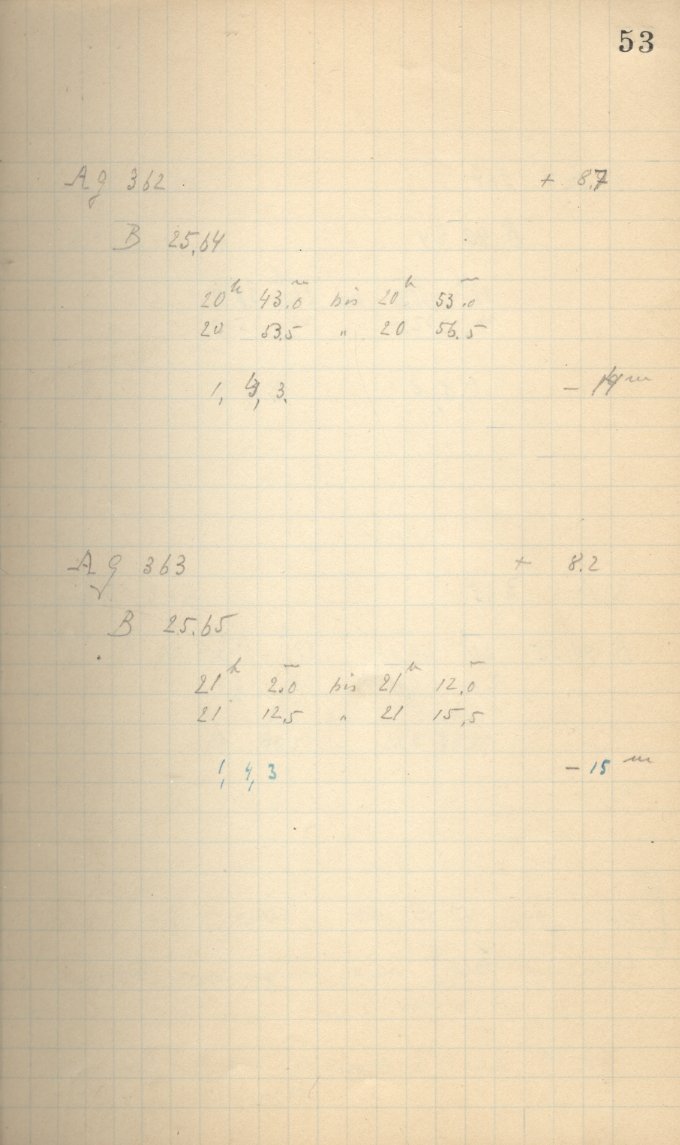 53
Ag 362 + 8.7
B 25.64
20h 43.0m bis 20h 53.0m
20 53.5 " 20 56.5
1, 4, 3.
Ag 363 + 8.2
B 25.65
21h 2.0m bis 21h 12.0m
21 12.5 " 21 15.5
1, 4, 3 - 15m